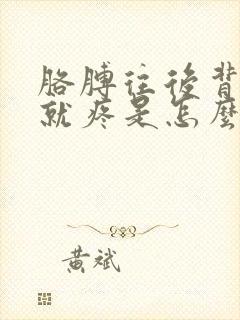 胳膊往後背
就疼是怎麼
黄斌